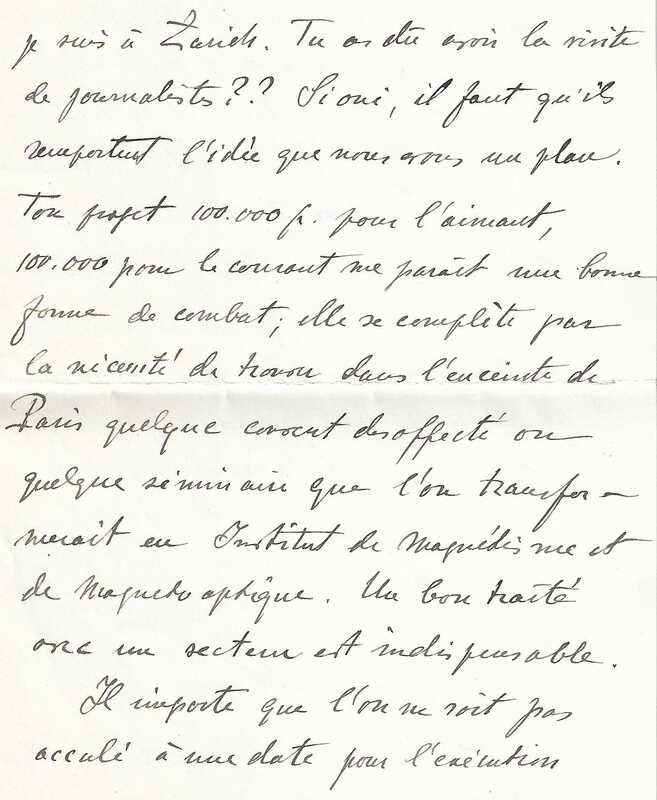 je suis à Zurich. Tu as dû avoir la visite
de journalistes?? Si oui, il faut qu'ils
remportent l'idée que nous avons un plan.
Ton projet 100.000 f. pour l'aimant,
100.000 pour le courant me paraît une bonne
forme de combat; elle se complète par
la nécessité de trouver dans l'enceinte de
Paris quelque couvent désaffecté ou
quelque séminaire que l'on transfor-
merait en Institut de Magnétisme et
de Magneto optique. Un bon traité
avec un secteur est indispensable.
Il importe que l'on ne soit pas
acculé à une date pour l'exécution